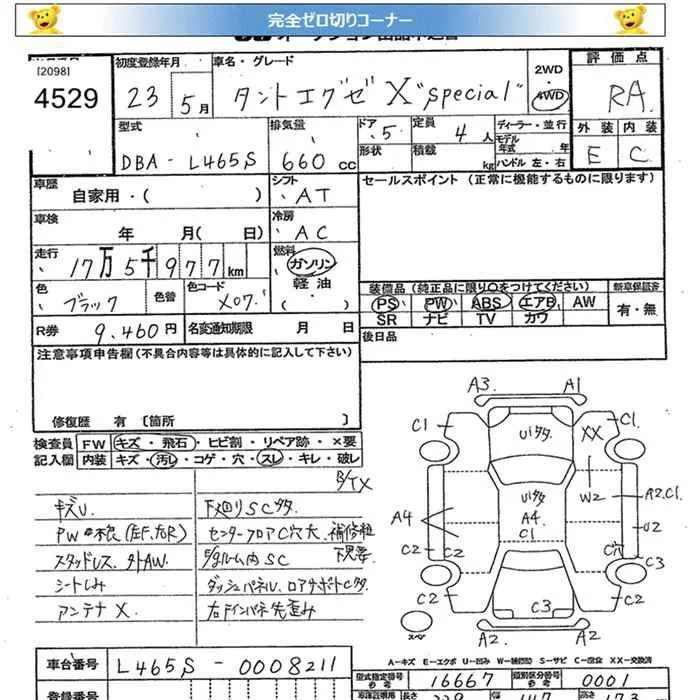 完全ゼロ切りコーナー
[2098]
4529
初度登録年月
23 5月
車名・グレード
タントエグゼ X "special"
2WD
4WD
評価点
RA
外装 内装
E C
型式
DBA-L465S
排気量
660 cc
ドア 5
形状
定員 4 人
積載 kg
ディーラー・並行
モデル年式 年
ハンドル 左・右
車歴
自家用・( )
シフト
AT
セールスポイント (正常に機能するものに限ります)
車検
年 月( 日)
冷房
AC
走行
17万5千977km
燃料
ガソリン
軽油
・( )
色
ブラック
色替
色コード
X07
装備品(純正品に限り○をつけてください)
新車保証書
PS PW ABS エアB AW
SR ナビ TV カワ
有・無
R券 9,460円
名変通知期限 月 日
後日品
注意事項申告欄(不具合内容等は具体的に記入して下さい)
修復歴 有 〔箇所 〕
検査員記入欄
FW キズ・飛石・ヒビ割・リペア跡・×要
内装 キズ・汚レ・コゲ・穴・スレ・キレ・破レ
キズU
下回りSCサタ
PW不良(左F,左R)
センターフロアC穴大 補修粗
スタッドレス 外AW
E/gルーム内SC
下見要
シートしみ
ダッシュパネル、ロアサポートCサタ
アンテナX
右Fインパネ先歪み
A3 A1
C1 U1サタ XX C1
U1サタ W2 A2.C1
A4 A4 C1 U2
C2 C2 C穴 C3
C2 C3 C2
A2 A2
スペア
A-キズ E-エクボ U-凹み W-補修跡 S-サビ C-腐食 XX-交換済
車台番号 L465S-0008211
型式指定番号 参考 16667
類別区分番号 参考 0001
登録番号